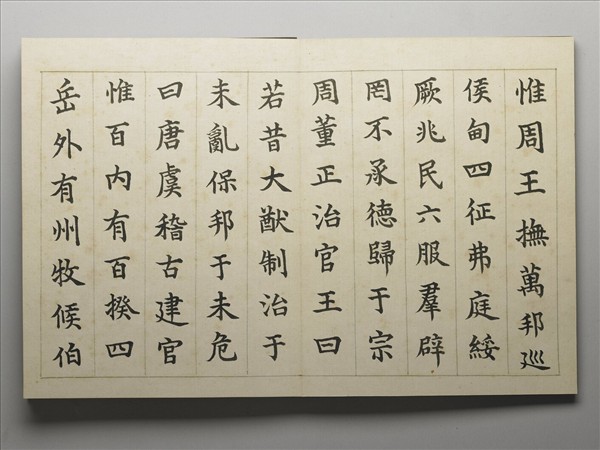 惟周王撫萬邦巡
侯甸四征弗庭綏
厥兆民六服羣辟
罔不承德歸于宗
周董正治官王曰
若昔大猷制治于
未亂保邦于未危
曰唐虞稽古建官
惟百内有百揆四
岳外有州牧候伯